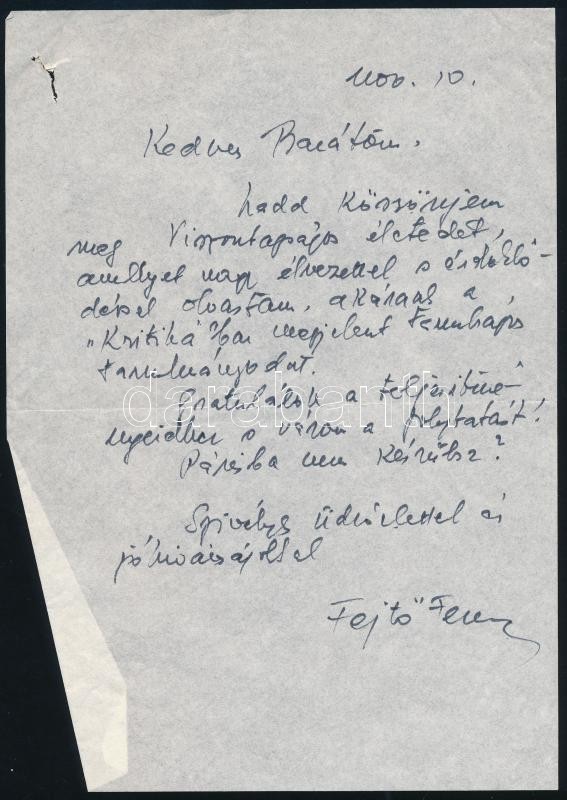 Nov. 10.
Kedves Barátom,
hadd köszönjem
meg Viszontagságos életedet,
amellyet nagy élvezettel s érdeklő-
déssel olvastam, akárcsak a
„Kritiká"ban megjelent
tanulmányodat.
Gratulálok a teljesítmé-
nyeidhez s várom a folytatást!
Párisba nem készülsz?
Szívélyes üdvözlettel és
jókívánságokkal
Fejtő Ferenc
darabanth